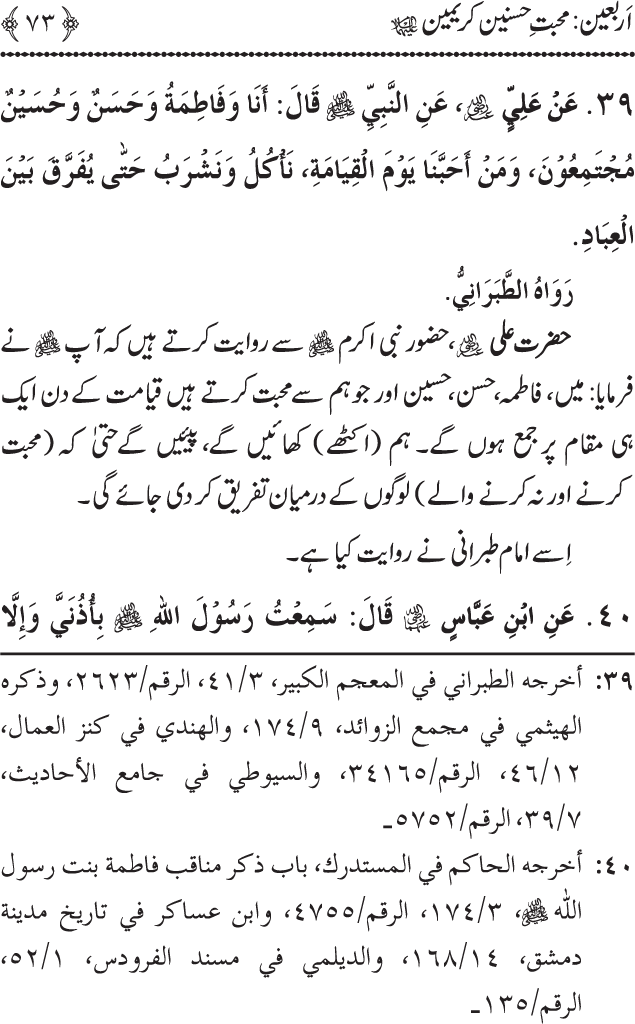 اَربعین: محبتِ حسنین کریمین علیہما السلام ﴿۷۳﴾
۳۹. عَنْ عَلِيٍّ رضی اللہ عنہ، عَنِ النَّبِيِّ ﷺ قَالَ: أَنَا وَفَاطِمَةُ وَحَسَنٌ وَحُسَيْنٌ
مُجْتَمِعُوْنَ، وَمَنْ أَحَبَّنَا يَوْمَ الْقِيَامَةِ، نَأْكُلُ وَنَشْرَبُ حَتّٰى يُفَرَّقَ بَيْنَ
الْعِبَادِ.
رَوَاهُ الطَّبَرَانِيُّ.
حضرت علی رضی اللہ عنہ، حضور نبی اکرم ﷺ سے روایت کرتے ہیں کہ آپ ﷺ نے
فرمایا: میں، فاطمہ، حسن، حسین اور جو ہم سے محبت کرتے ہیں قیامت کے دن ایک
ہی مقام پر جمع ہوں گے۔ ہم (اکٹھے) کھائیں گے، پیئیں گے حتیٰ کہ (محبت
کرنے اور نہ کرنے والے) لوگوں کے درمیان تفریق کر دی جائے گی۔
اِسے امام طبرانی نے روایت کیا ہے۔
۴۰. عَنِ ابْنِ عَبَّاسٍ رضی اللہ عنہما قَالَ: سَمِعْتُ رَسُوْلَ اللهِ ﷺ بِأُذُنَيَّ وَإِلَّا
۳۹: أخرجه الطبراني في المعجم الكبير، ۳/۴۱، الرقم/۲۶۲۳، وذكره
الهيثمي في مجمع الزوائد، ۹/۱۷۴، والهندي في كنز العمال،
۱۲/۴۶، الرقم/۳۴۱۶۵، والسيوطي في جامع الأحاديث،
۷/۳۹، الرقم/۵۷۵۲۔
۴۰: أخرجه الحاكم في المستدرك، باب ذكر مناقب فاطمة بنت رسول
الله ﷺ، ۳/۱۷۴، الرقم/۴۷۵۵، وابن عساكر في تاريخ مدينة
دمشق، ۱۴/۱۶۸، والديلمي في مسند الفرودس، ۱/۵۲،
الرقم/۱۳۵۔